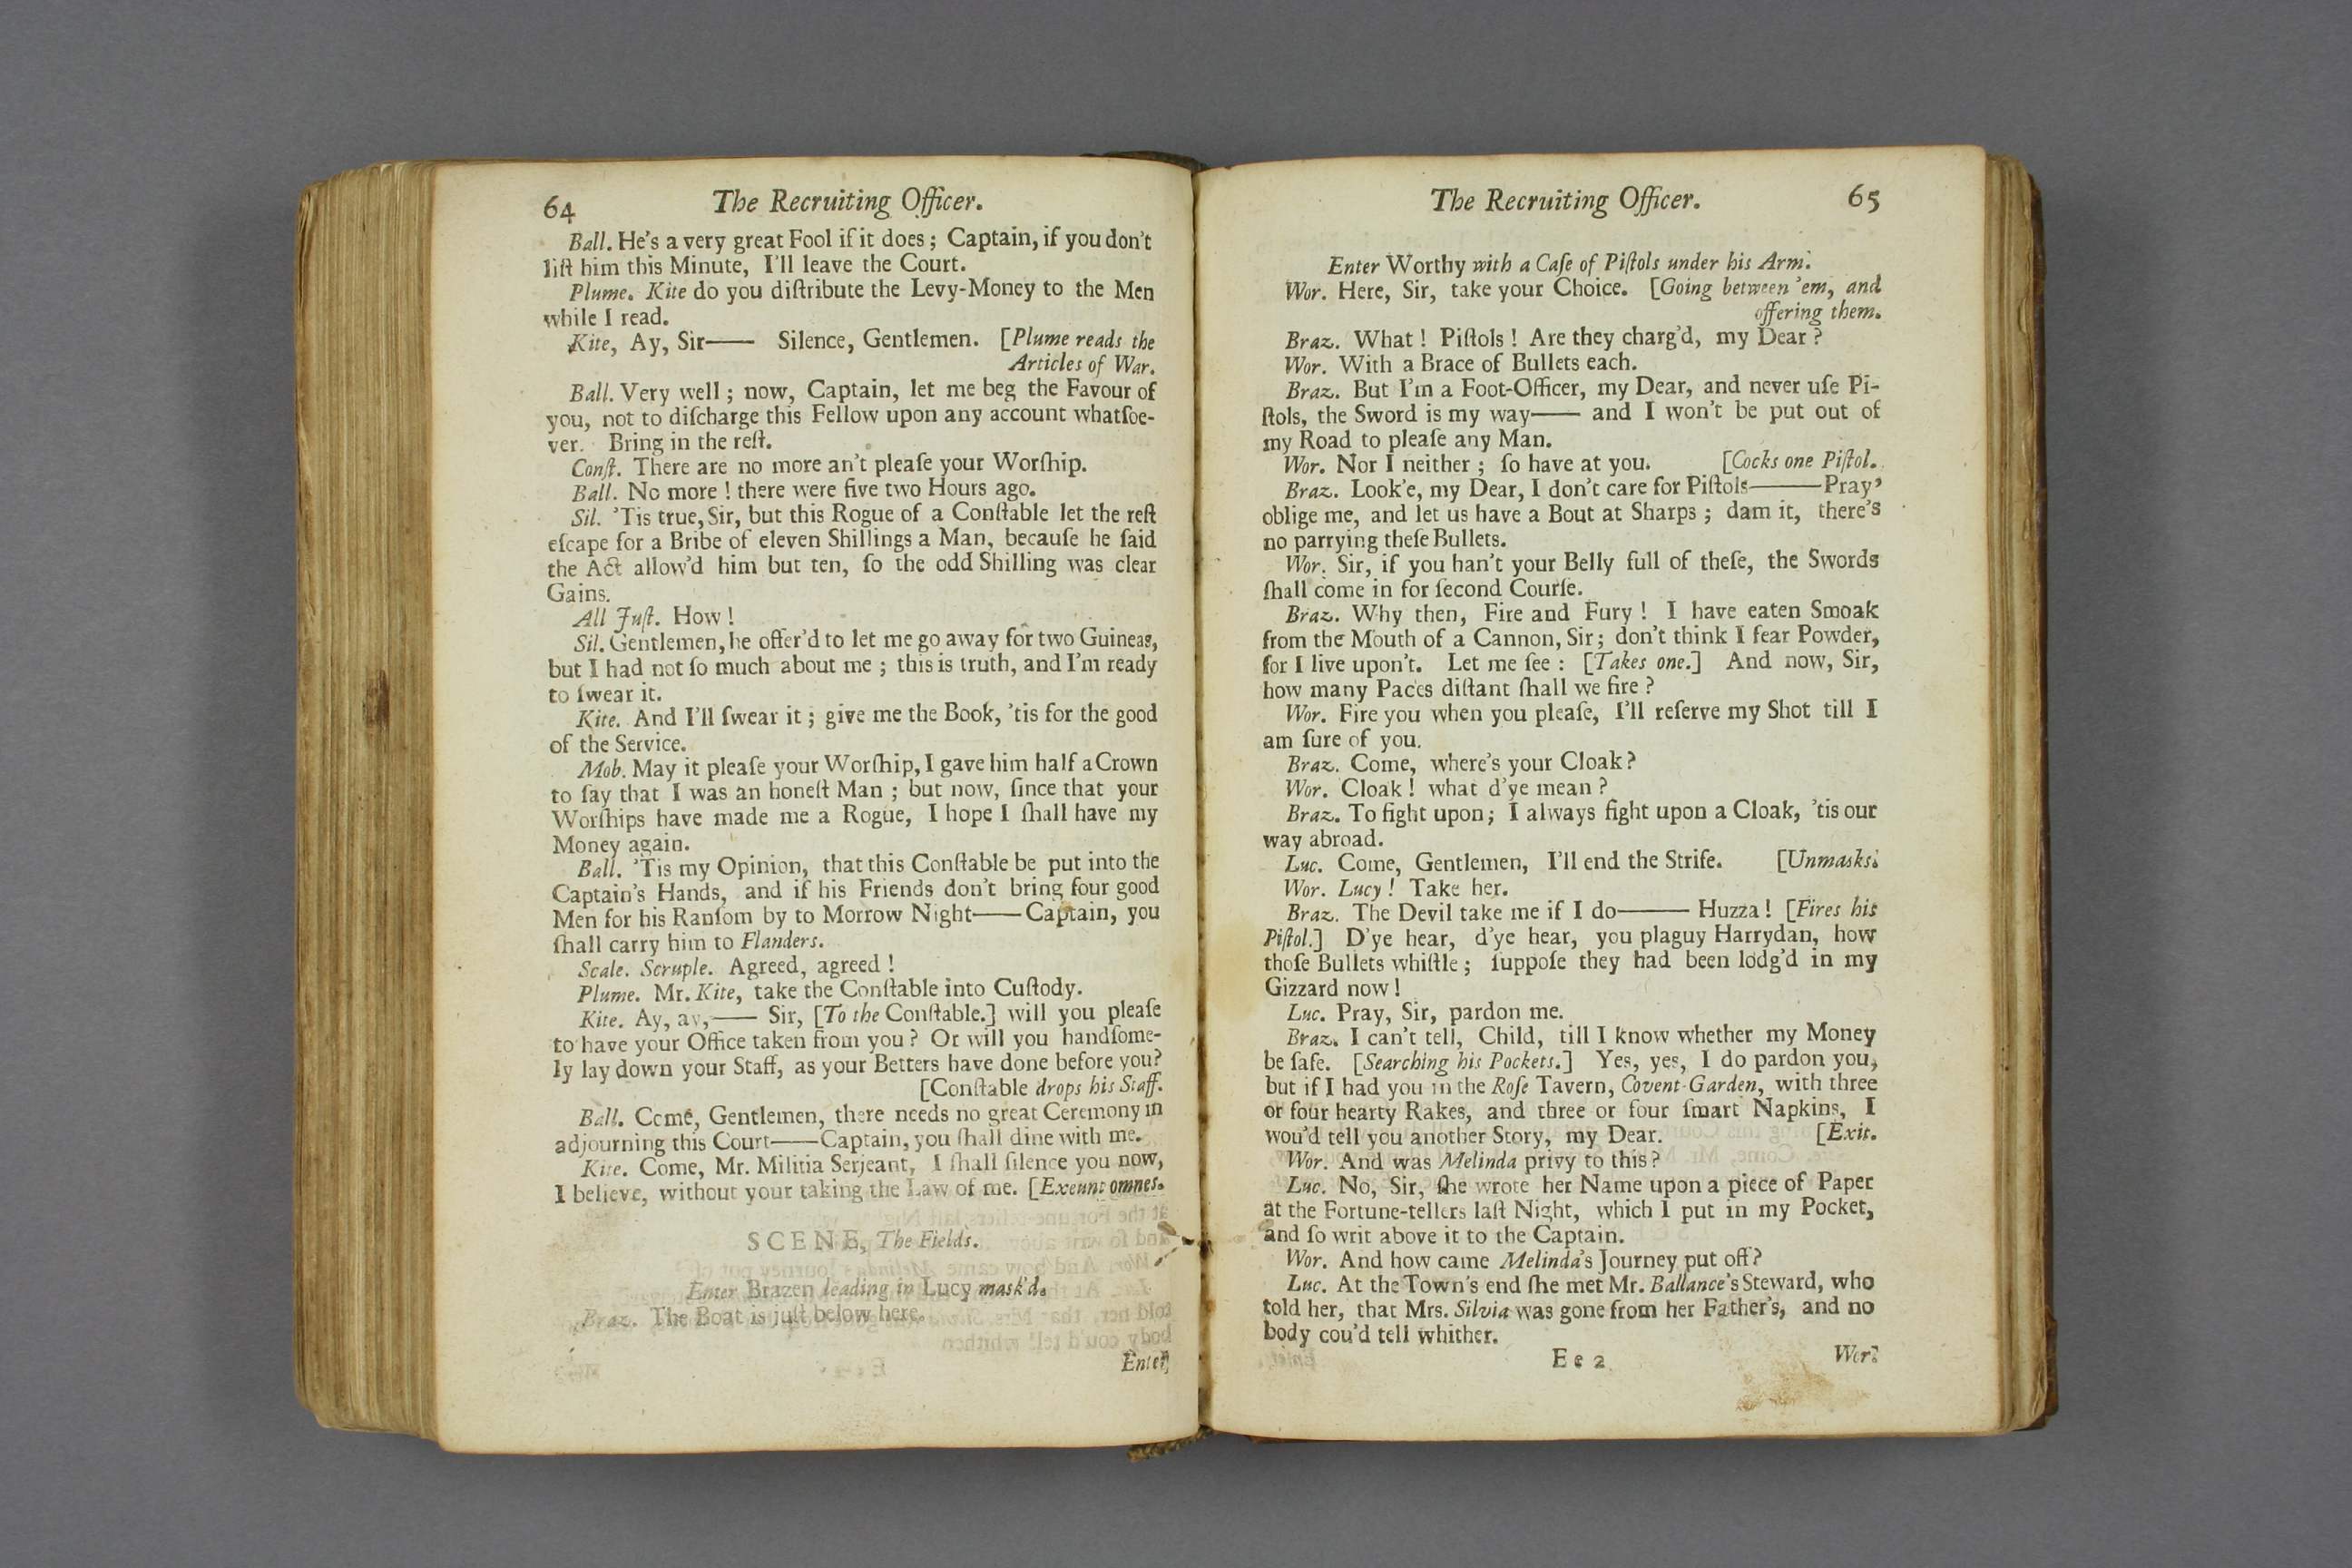 64 The Recruiting Officer.
Ball. He's a very great Fool if it does; Captain, if you don't
liſt him this Minute, I'll leave the Court.
Plume. Kite do you diſtribute the Levy-Money to the Men
while I read.
Kite, Ay, Sir—— Silence, Gentlemen. [Plume reads the
Articles of War.
Ball. Very well; now, Captain, let me beg the Favour of
you, not to diſcharge this Fellow upon any account whatſoe-
ver. Bring in the reſt.
Conſt. There are no more an't pleaſe your Worſhip.
Ball. No more! there were five two Hours ago.
Sil. 'Tis true, Sir, but this Rogue of a Conſtable let the reſt
eſcape for a Bribe of eleven Shillings a Man, becauſe he ſaid
the Act allow'd him but ten, ſo the odd Shilling was clear
Gains.
All Juſt. How!
Sil. Gentlemen, he offer'd to let me go away for two Guineas,
but I had not ſo much about me; this is truth, and I'm ready
to ſwear it.
Kite. And I'll ſwear it; give me the Book, 'tis for the good
of the Service.
Mob. May it pleaſe your Worſhip, I gave him half a Crown
to ſay that I was an honeſt Man; but now, ſince that your
Worſhips have made me a Rogue, I hope I ſhall have my
Money again.
Ball. 'Tis my Opinion, that this Conſtable be put into the
Captain's Hands, and if his Friends don't bring four good
Men for his Ranſom by to Morrow Night——Captain, you
ſhall carry him to Flanders.
Scale. Scruple. Agreed, agreed!
Plume. Mr. Kite, take the Conſtable into Cuſtody.
Kite. Ay, ay,—— Sir, [To the Conſtable.] will you pleaſe
to have your Office taken from you? Or will you handſome-
ly lay down your Staff, as your Betters have done before you?
[Conſtable drops his Staff.
Ball. Come, Gentlemen, there needs no great Ceremony in
adjourning this Court——Captain, you ſhall dine with me.
Kite. Come, Mr. Militia Serjeant, I ſhall ſilence you now,
I believe, without your taking the Law of me. [Exeunt omnes.
SCENE, The Fields.
Enter Brazen leading in Lucy mask'd.
Braz. The Boat is juſt below here.
Enter
The Recruiting Officer. 65
Enter Worthy with a Caſe of Piſtols under his Arm.
Wor. Here, Sir, take your Choice. [Going between 'em, and
offering them.
Braz. What! Piſtols! Are they charg'd, my Dear?
Wor. With a Brace of Bullets each.
Braz. But I'm a Foot-Officer, my Dear, and never uſe Pi-
ſtols, the Sword is my way—— and I won't be put out of
my Road to pleaſe any Man.
Wor. Nor I neither; ſo have at you. [Cocks one Piſtol.
Braz. Look'e, my Dear, I don't care for Piſtols———Pray'
oblige me, and let us have a Bout at Sharps; dam it, there's
no parrying theſe Bullets.
Wor. Sir, if you han't your Belly full of theſe, the Swords
ſhall come in for ſecond Courſe.
Braz. Why then, Fire and Fury! I have eaten Smoak
from the Mouth of a Cannon, Sir; don't think I fear Powder,
for I live upon't. Let me ſee: [Takes one.] And now, Sir,
how many Paces diſtant ſhall we fire?
Wor. Fire you when you pleaſe, I'll reſerve my Shot till I
am ſure of you.
Braz. Come, where's your Cloak?
Wor. Cloak! what d'ye mean?
Braz. To fight upon; I always fight upon a Cloak, 'tis our
way abroad.
Luc. Come, Gentlemen, I'll end the Strife. [Unmasks.
Wor. Lucy! Take her.
Braz. The Devil take me if I do——— Huzza! [Fires his
Piſtol.] D'ye hear, d'ye hear, you plaguy Harrydan, how
thoſe Bullets whiſtle; ſuppoſe they had been lodg'd in my
Gizzard now!
Luc. Pray, Sir, pardon me.
Braz. I can't tell, Child, till I know whether my Money
be ſafe. [Searching his Pockets.] Yes, yes, I do pardon you,
but if I had you in the Roſe Tavern, Covent-Garden, with three
or four hearty Rakes, and three or four ſmart Napkins, I
wou'd tell you another Story, my Dear. [Exit.
Wor. And was Melinda privy to this?
Luc. No, Sir, ſhe wrote her Name upon a piece of Paper
at the Fortune-tellers laſt Night, which I put in my Pocket,
and ſo writ above it to the Captain.
Wor. And how came Melinda's Journey put off?
Luc. At the Town's end ſhe met Mr. Ballance's Steward, who
told her, that Mrs. Silvia was gone from her Father's, and no
body cou'd tell whither.
E e 2 Wor.